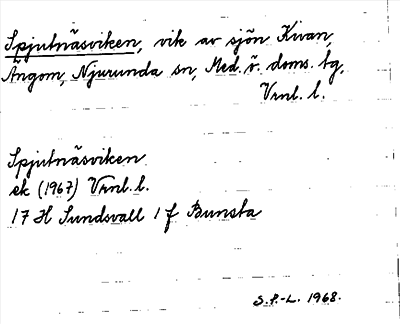 Spjutnäsviken, vik av sjön Kivan,
Ångom, Njurunda sn, Med. ö. doms. tg,
Vrnl. l.
Spjutnäsviken
ek (1967) Vrnl. l.
17 H Sundsvall 1 f Bunsta
S.P.-L. 1968.